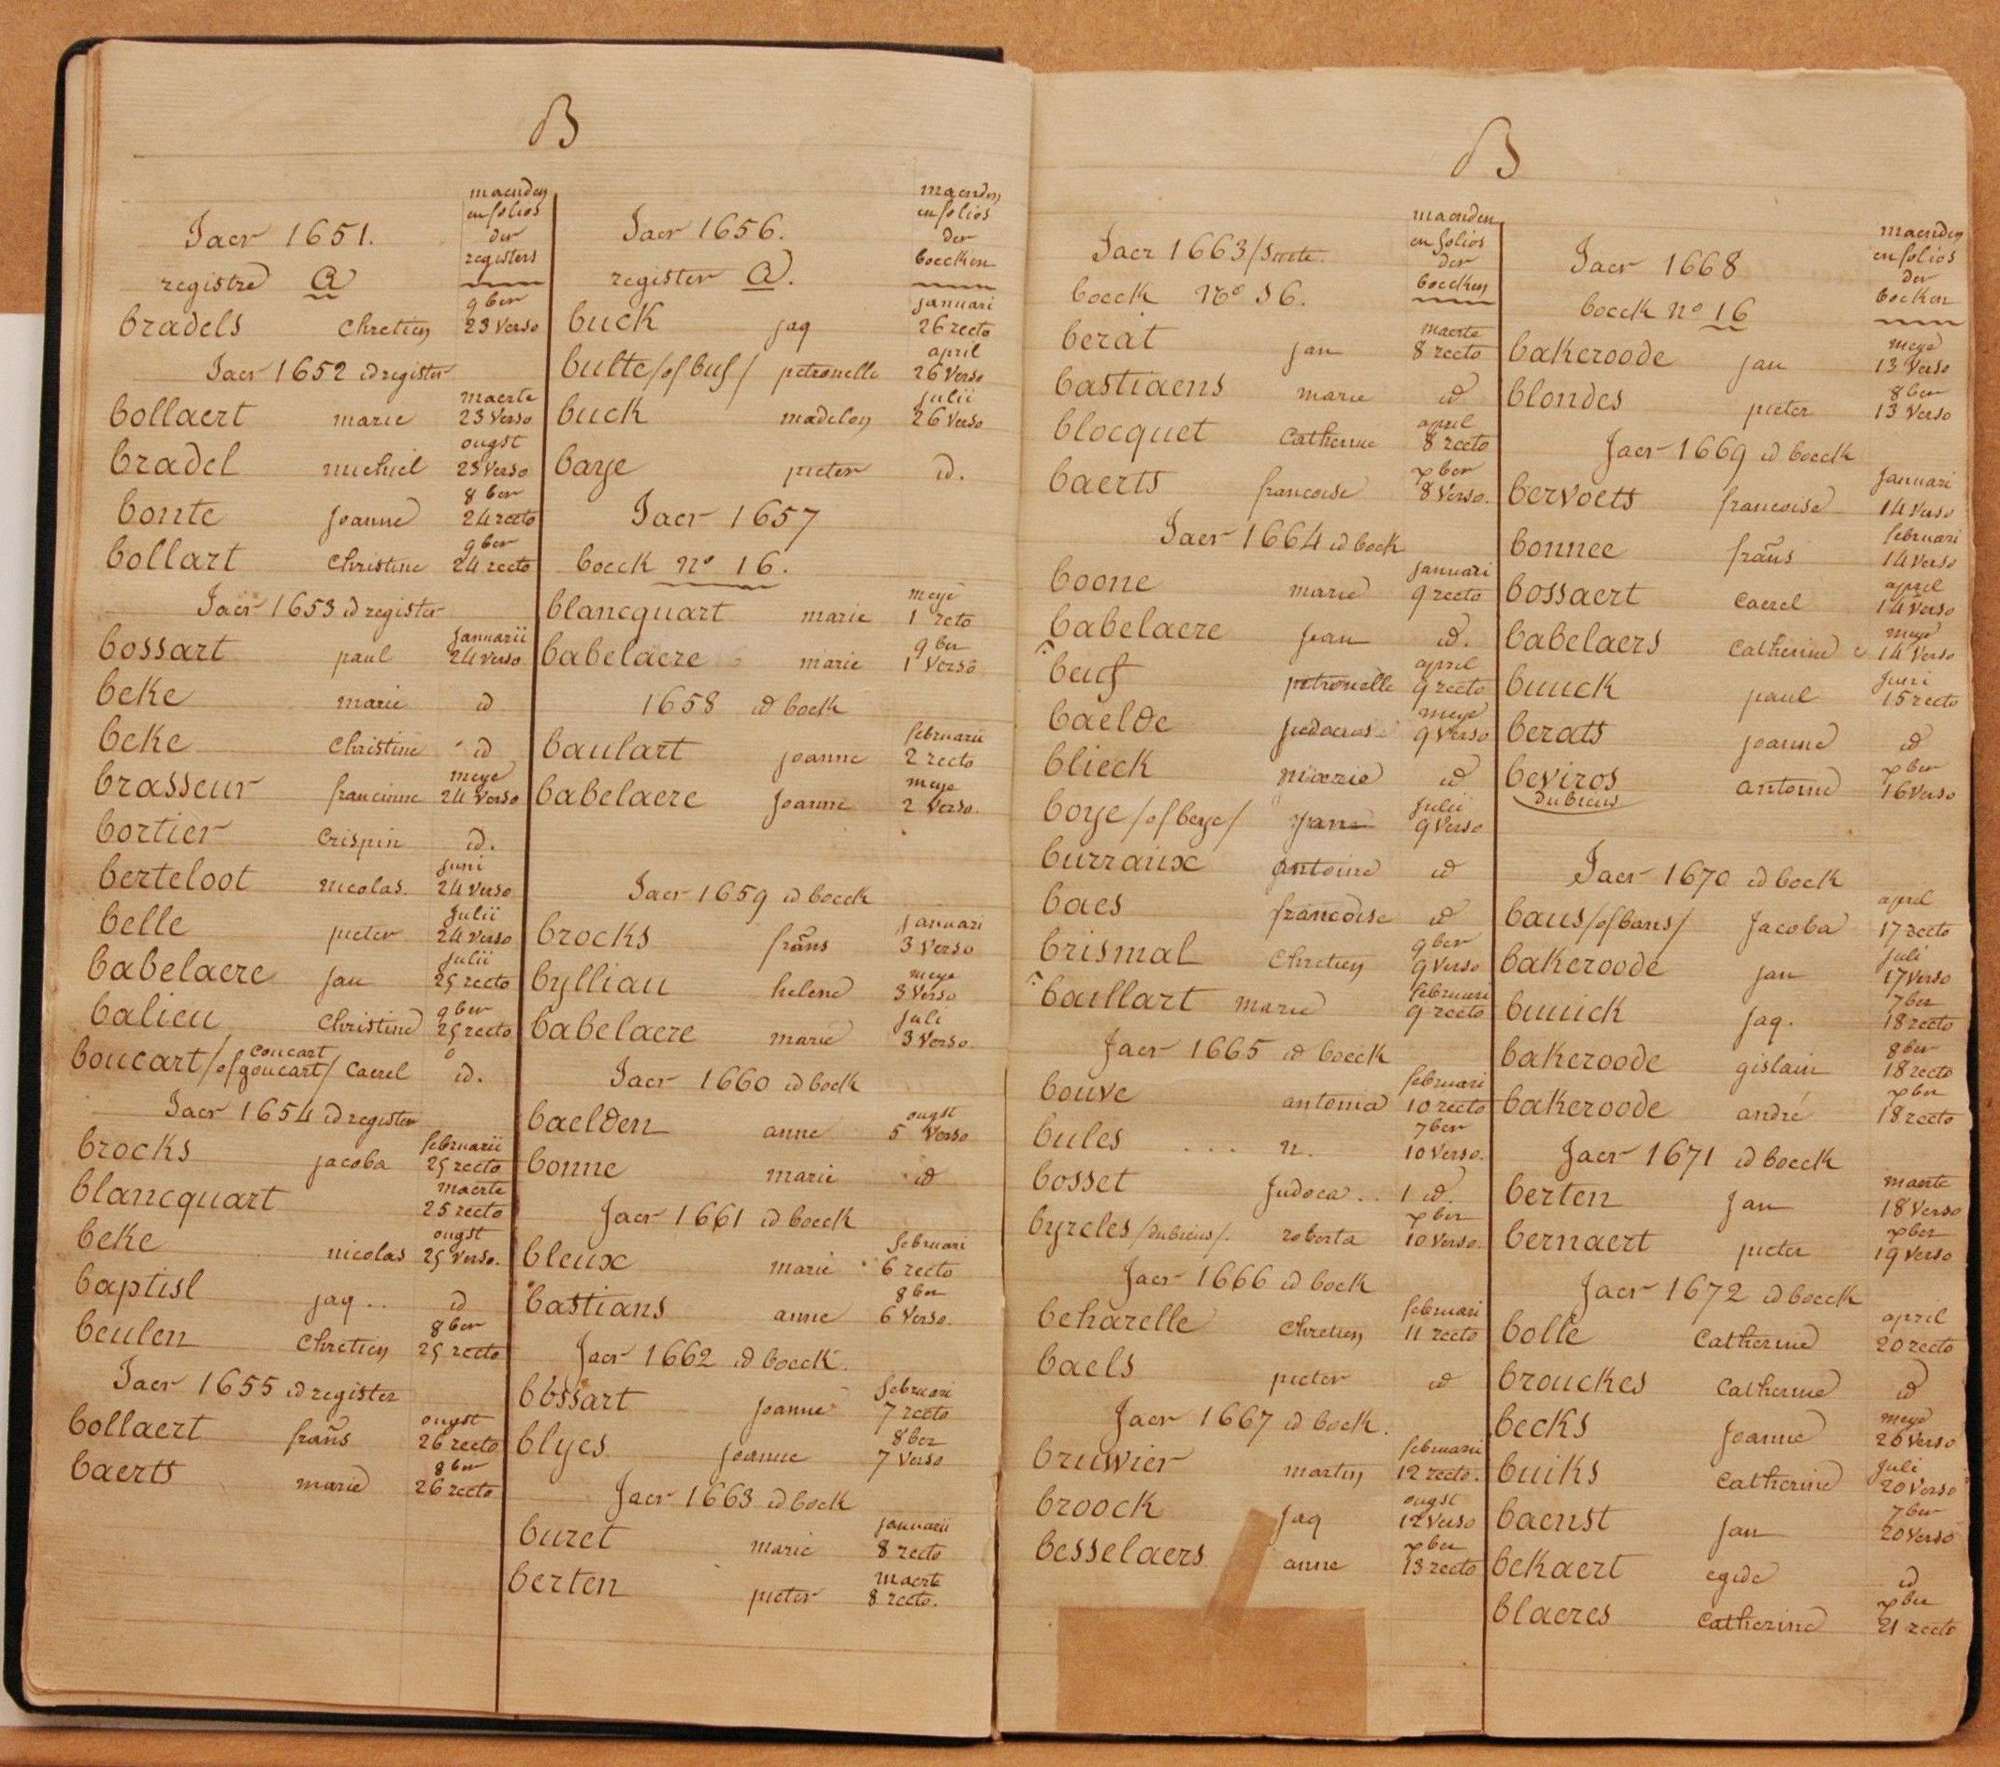 B
Jaer 1651.
maenden
en folios
der
registers
registre A
bradels chretien 9ber 23 verso
Jaer 1652 id register
bollaert marie maerte 23 verso
bradel michiel ougst 23 verso
bonte joanne 8ber 24 recto
bollart christine 9ber 24 recto
Jaer 1653 id register
bossart paul januarii 24 verso
beke marie id
beke christine id
brasseur francinne meye 24 verso
bortier crispin id.
berteloot nicolas. juni 24 verso
belle pieter julii 24 verso
babelaere jan julii 25 recto
balieu christine 9ber 25 recto
boucart /of coucart goucart/ caerel id.
Jaer 1654 id register
brocks jacoba februarii 25 recto
blancquart maerte 25 recto
beke nicolas ougst 25 verso.
baptist jaq.. id
beulen chretien 8ber 25 recto
Jaer 1655 id register
bollaert frans ougst 26 recto
baerts marie 8ber 26 recto
Jaer 1656.
maenden
en folios
der
boecken
register A.
buck jaq januari 26 recto
bulte /of buf/ petronelle april 26 verso
buck madelon julii 26 verso
baye pieter id.
Jaer 1657
boeck no 16.
blancquart marie meye 1 recto
babelaere marie 9ber 1 verso
1658 id boek
baulart joanne februarii 2 recto
babelaere joanne meye 2 verso.
Jaer 1659 id boeck
brocks frans januari 3 verso
bylliau helene meye 3 verso
babelaere marie juli 3 verso.
Jaer 1660 id boek
baelden anne ougst 5 verso
bonne marie id
Jaer 1661 id boeck
bleux marie februari 6 recto
bastians anne 8ber 6 verso.
Jaer 1662 id boeck.
bossart joanne februari 7 recto
blyes joanne 8ber 7 verso
Jaer 1663 id boek
buret marie januarii 8 recto
berten pieter maerte 8 recto.
B
Jaer 1663 /suite.
maenden
en folios
der
boecken
boeck No 16.
berat jan maerte 8 recto
bastiaens marie id
blocquet catherine april 8 recto
baerts francoise xber 8 verso.
Jaer 1664 id boek
boone marie januari 9 recto
babelaere jean id.
beuf petronelle april 9 recto
baelde judocus meye 9 verso
blieck marie id
boye /of beye/ jan julii 9 verso
burraux antoine id
baes francoise id
brismal chretien 9ber 9 verso
baillart marie februari 9 recto
Jaer 1665 id boeck
bouve antonia februari 10 recto
bules ... n. 7ber 10 verso.
bosset judoca.. id.
byrcles /dubieus/. roberta xber 10 verso.
Jaer 1666 id boek
beharelle chretien februari 11 recto
baels pieter id
Jaer 1667 id boek.
bruwier martin februarii 12 recto.
broock jaq ougst 12 verso
besselaers anne xber 13 recto
Jaer 1668
maenden
en folios
der
boeken
boeck no 16
bakeroode jan meye 13 verso
blondes pieter 8ber 13 verso
Jaer 1669 id boeck
bervoets francoise januari 14 verso
bonnee frans februari 14 verso
bossaert caerel april 14 verso
babelaers catherine meye 14 verso
buuck paul juni 15 recto
berats joanne id
beviros antoine xber 16 verso
dubieus
Jaer 1670 id boek
baus /of bans/ jacoba april 17 recto
bakeroode jan juli 17 verso
buuick jaq. 7ber 18 recto
bakeroode gislain 8ber 18 recto
bakeroode andré xber 18 recto
Jaer 1671 id boeck
berten jan maerte 18 verso
bernaert pieter xber 19 verso
Jaer 1672 id boeck
bolle catherine april 20 recto
brouckes catherine id
becks joanne meye 20 verso
buiks catherine juli 20 verso
baenst jan 7ber 20 verso
bekaert egide id
blaeres catherine xber 21 recto